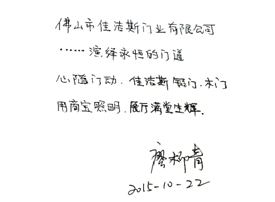 佛山市佳洁斯门业有限公司
……演绎永恒的门道
心随门动.佳洁斯铝门.木门
用商宝照明.展厅满堂生辉.
廖柳青
2015-10-22